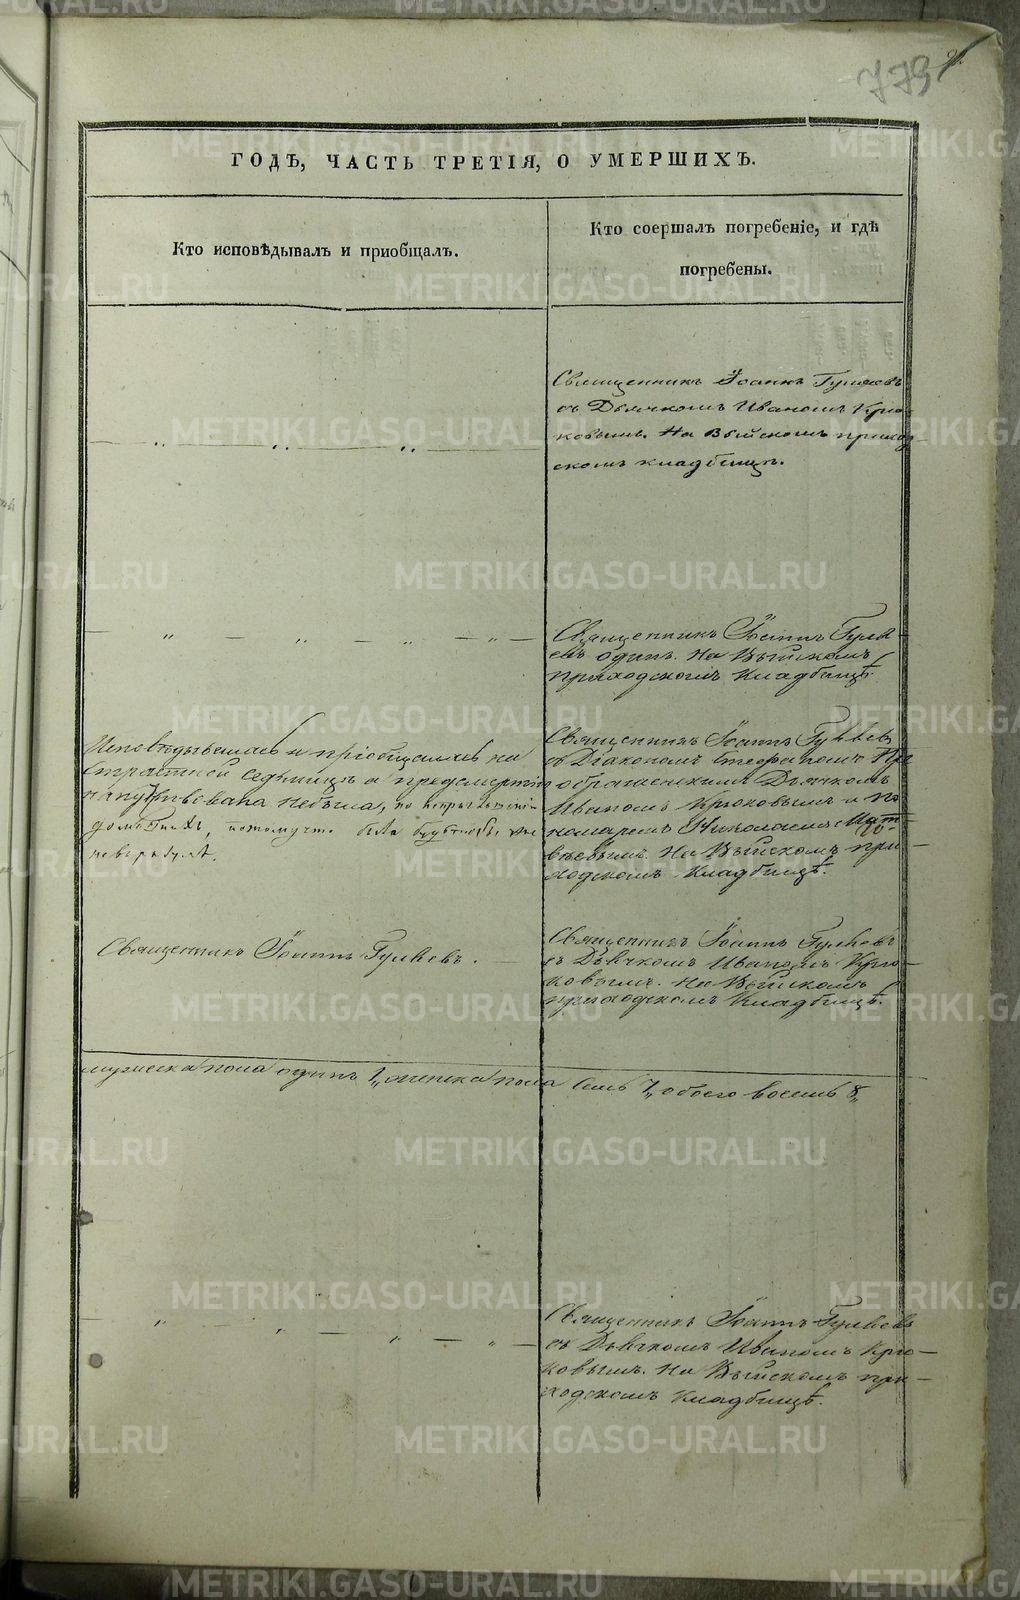 779
ГОДѢ, ЧАСТЬ ТРЕТІЯ, О УМЕРШИХЪ.
Кто исповѣдывалъ и приобщалъ.
Кто соершалъ погребеніе, и гдѣ
погребены.
Священникъ Іоаннъ Гуляевъ
съ Дьячкомъ Иваномъ Крю-
ковымъ. На Выйскомъ приход-
скомъ кладбищѣ.
Священникъ Іоаннъ Гуля-
евъ одинъ. На Выйскомъ
приходскомъ Кладбищѣ.
Исповѣдывалась и пріобщалась на
Страстной Седьмицѣ а предсмертно
напутствована небыла, по
потому что была
Священникъ Іоаннъ Гуляевъ
съ Діакономъ Стефаномъ Пре
ображенскимъ Дьячкомъ
Иваномъ Крюковымъ и По
номаремъ Николаемъ Мат-
вѣевымъ. На Выйскомъ при-
ходскомъ Кладбищѣ.
Священникъ Іоаннъ Гуляевъ.
Священникъ Іоаннъ Гуляевъ
съ Дьячкомъ Иваномъ Крю-
ковымъ. На Выйскомъ
приходскомъ Кладбищѣ.
мужеска пола одинъ 1,, женска пола семь 7,, обоего восемь 8,,
Священникъ Іоаннъ Гуляевъ
съ Дьячкомъ Иваномъ Крю-
ковымъ. На Выйскомъ при-
ходскомъ Кладбищѣ.
METRIKI.GASO-URAL.RU